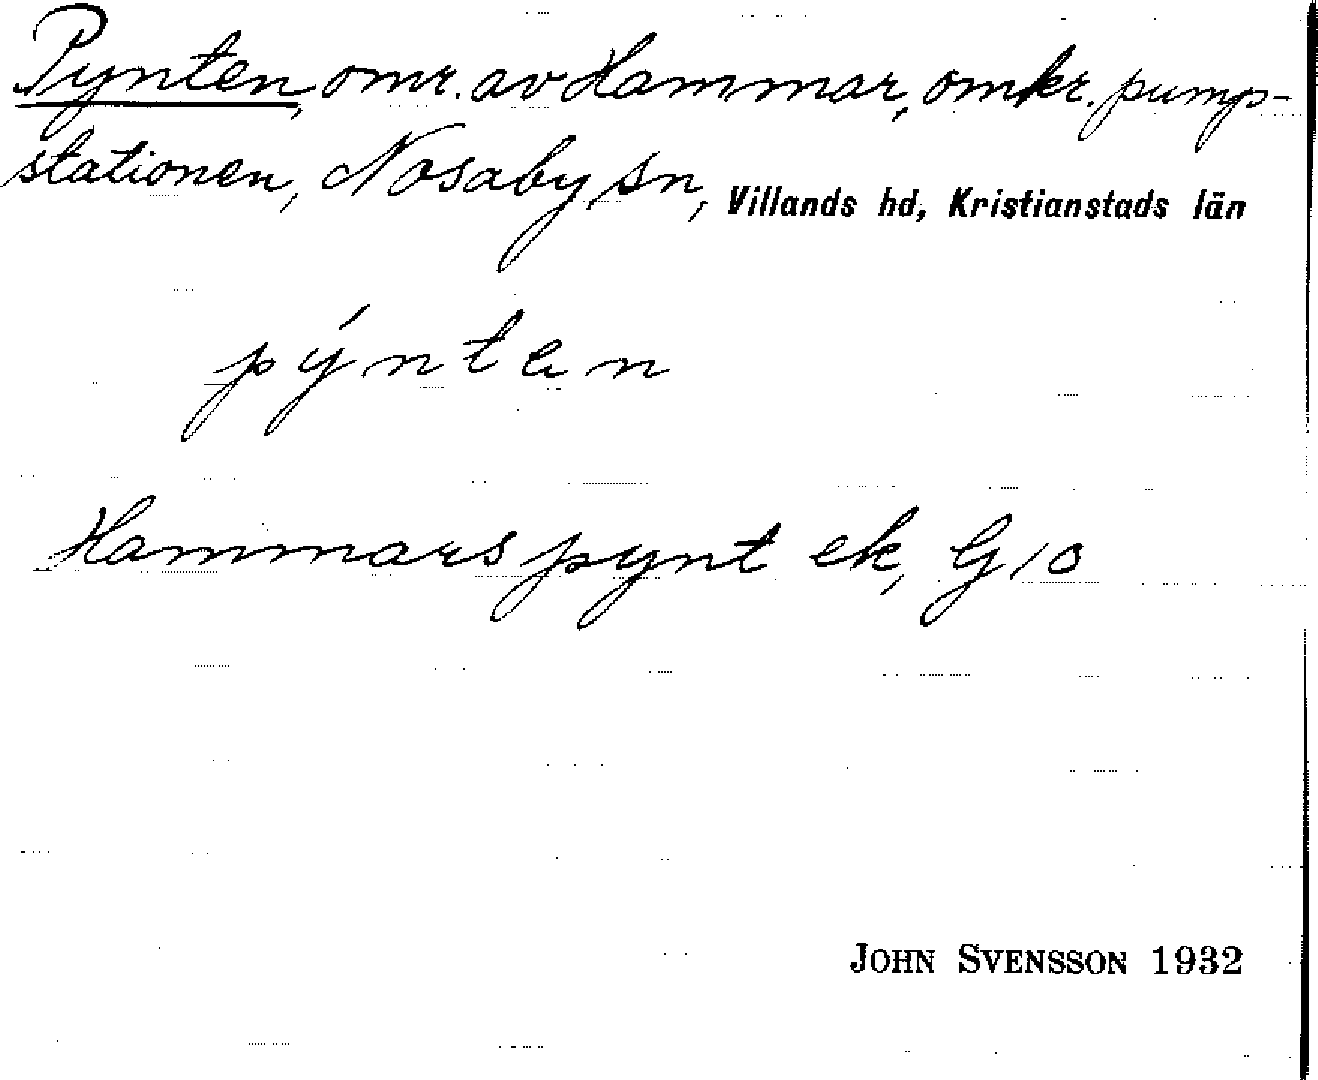 Pynten, omr. av Hammar, omkr. pump-
stationen, Nosaby sn, Villands hd, Kristianstads län
pýntεn
Hammars pynt ek, G10
JOHN SVENSSON 1932